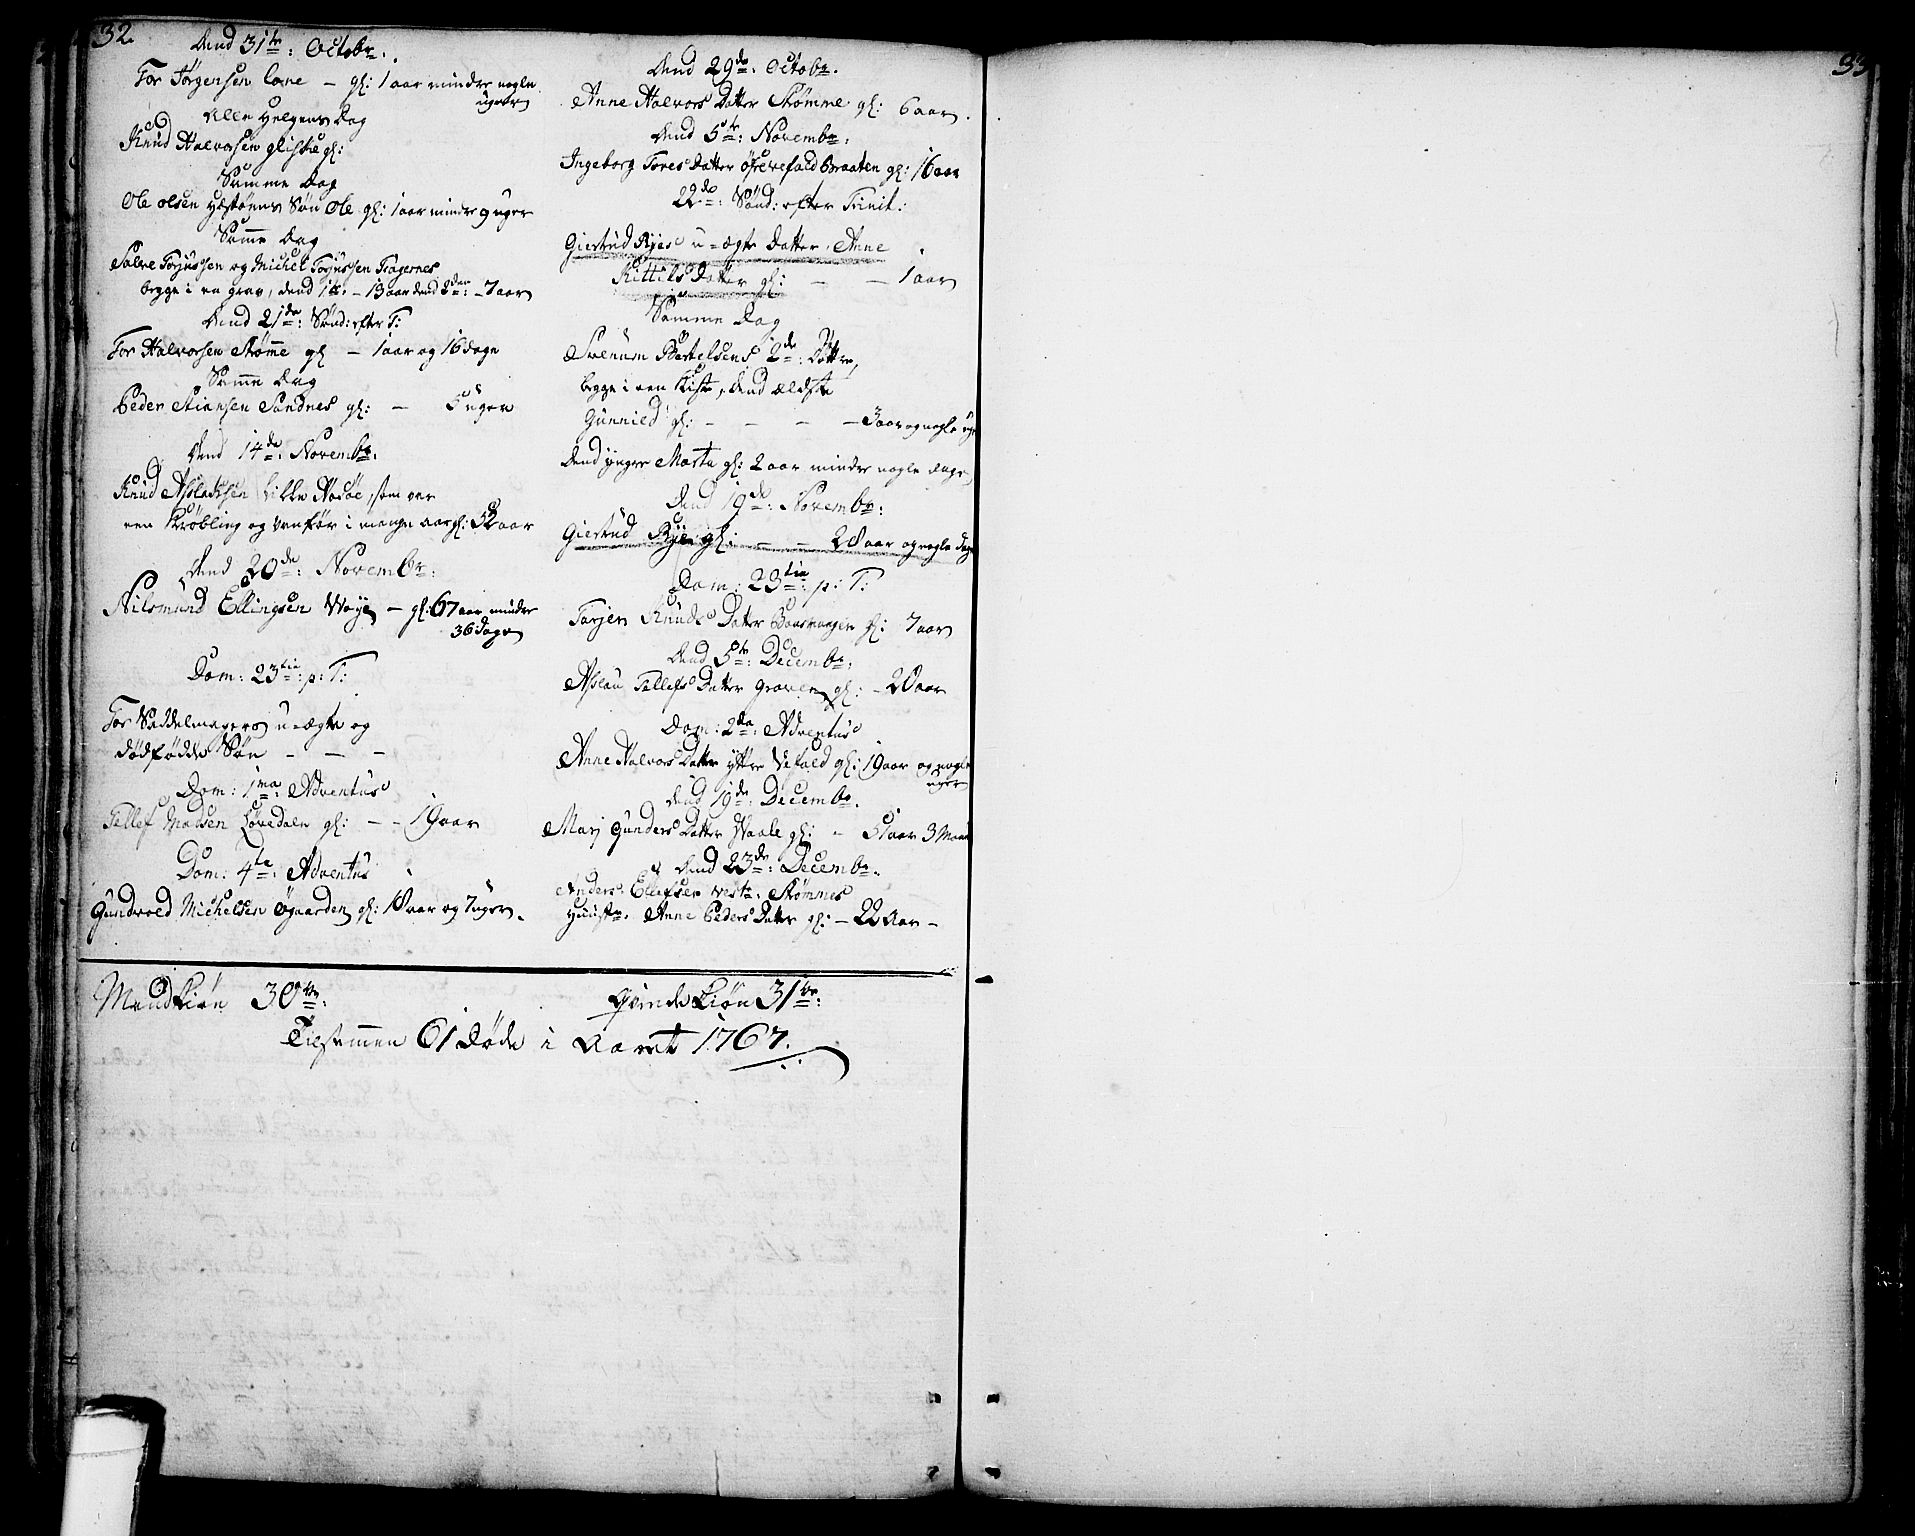 32.
Dend 31te: Octobr:
Tor Jørgensen Cone — gl: 1 aar mindre nogle
uger
Alle Helgens Dag
Knud Halvorsen gliske gl:
Samme Dag
Ole Olsen Søn Ole gl: 1 aar mindre 9 uger
Same Dag
Salve Torjussen og Michel Torjussen Tragernes
begge i en grav, dend 1te — 13 aar dend 2den — 7 aar
Dend 21de: Sønd: efter T:
Tor Halvorsen Stømme gl — 1 aar og 16 dage
Same Dag
Peder Stiansen Sandnes gl: — 5 uger
Dend 14de: Novembr:
Knud Aslaksen lille som var
een Krøbling og vanfør i mange aar gl: 52 aar
Dend 20de: Novembr:
Nilsmund Ellingsen Woye — gl: 67 aar mindre
36 dage
Dom: 23tia: p: T:
Tor Saddelmagers u-ægte og
dødfødde Søn — — —
Dom: 1ma: Adventus
Tellef Madsen Løvedalen gl: — — 19 aar
Dom: 4ta: Adventus
Gundvold Michelsen Øgaarden gl: 18 aar og 7 uger.
Dend 29de: Octobr.
Anne Halvors Datter Stømme gl: 6 aar.
Dend 5te: Novembr:
Ingeborg Tores Datter Øfrevefald Braaten gl: 16 aar
22de: Sønd: efter Trinit:
Giertrud Ryes u-ægte Datter, Anne
Kittils Datter gl: — — 1 aar
Samme Dag
Svenum Bertelsens 2de: Døttre,
begge i een Kiste, dend ældste
Gunnild gl: — — — — 3 aar og nogle uger
Dend yngre Marta gl: 2 aar mindre nogle dage
Dend 19de: Novembr:
Giertrud Rye gl: — — 28 aar og nogle dage
Dom: 23tia: p: T:
Torjer Knuds Datter gl: 7 aar
Dend 5te: Decembr:
Aslau Tellefs Datter Graven gl: — 20 aar
Dom: 2da: Adventus
Anne Halvors Datter yttre Vefald gl: 19 aar og nogle
uger
Dend 19de: Decembr.
Mari Gunders Datter Waale gl: — 51 aar 3 Maan
Dend 23de: Decembr.
Anders Ellefsen vestr: Stømmes
Huustr. Anne Peders Datter gl: — 22 Aar —
Mandkiøn 30ve:
Qvindekiøn 31ve:
Tilsammen 61 Døde i Aaret 1767.
33